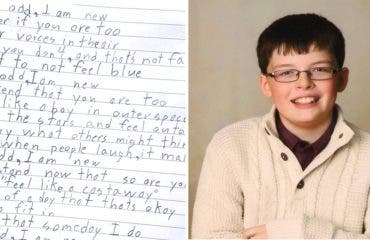 odd, I am new
er if you are too
r voices in the air
you don't, and that's not fa
t to not feel blue
odd, I am new
end that you are too
like a boy in outerspace
the stars and feel outa
ry what others might thi
when people laugh, it mak
dd, I am new
stand now that so are yo
"feel like a castaway"
of a day that thats okay
fit in
that someday I do
dd, I am new